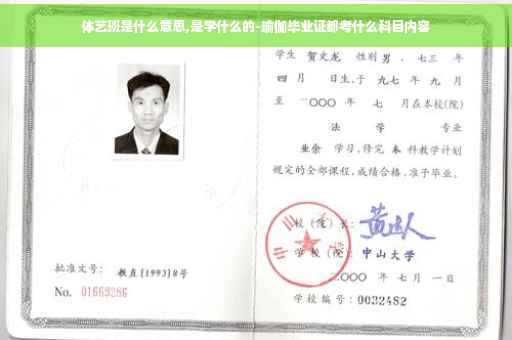 体艺班是什么意思,是学什么的-瑜伽毕业证都考什么科目内容
学生 贺文龙 性别 男 、七三 年
四 月 日生,于 九七 年 九 月
至 二〇〇〇 年 七 月在本校(院)
法 学 专业
业余 学习,修完 本 科教学计划
规定的全部课程,成绩合格,准予毕业。
校(院)长:
学校(院): 中山大学
二〇〇〇 年 七 月 一 日
学校编号:0032482
批准文号: 教直[1993]8号
No. 01669286